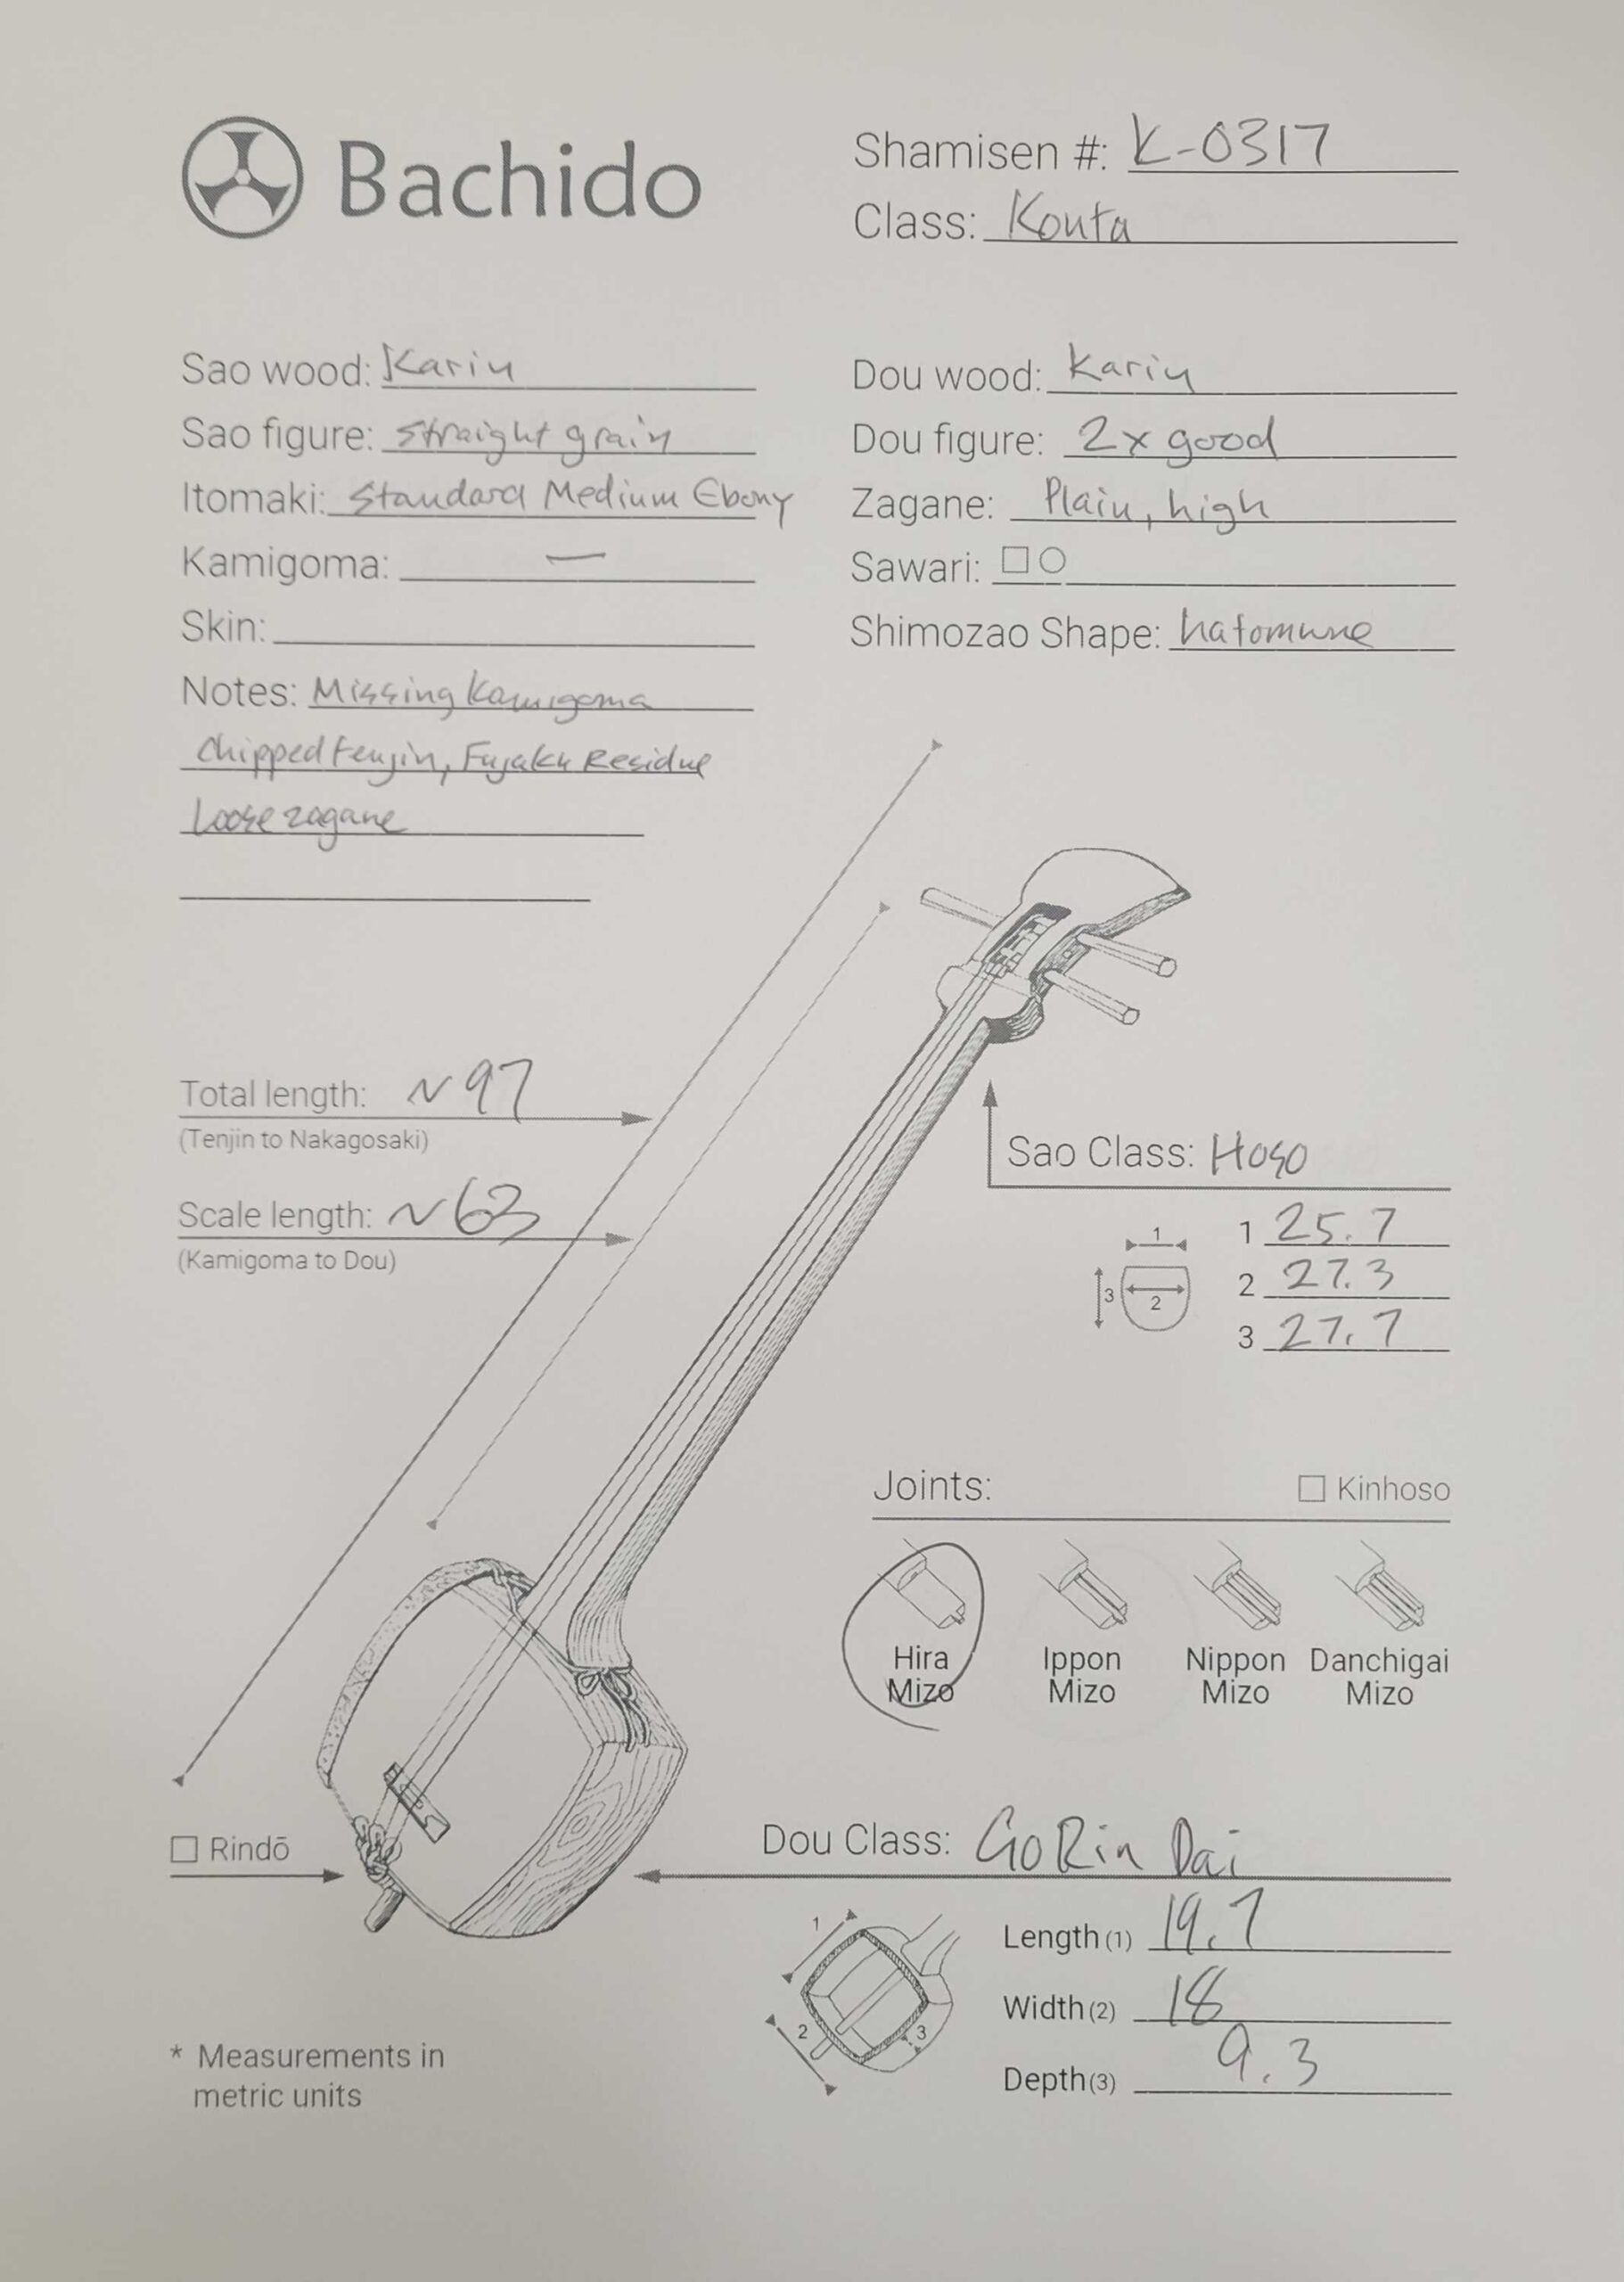 Bachido
Shamisen #: K-0317
Class: Kouta
Sao wood: Karin
Sao figure: straight grain
Itomaki: Standard Medium Ebony
Kamigoma: —
Skin:
Notes: Missing Kamigoma
Chipped Tenjin, Fujaku Residue
Loose zagane
Dou wood: Karin
Dou figure: 2x good
Zagane: Plain, high
Sawari: □○
Shimozao Shape: hatomune
Total length: ~97
(Tenjin to Nakagosaki)
Scale length: ~63
(Kamigoma to Dou)
Sao Class: Hoso
1
3
2
1 25.7
2 27.3
3 27.7
Joints:
□ Kinhoso
Hira Mizo
Ippon Mizo
Nippon Mizo
Danchigai Mizo
□ Rindō
Dou Class: GoRin Dai
1
2
3
Length(1) 19.7
Width(2) 18
Depth(3) 9.3
* Measurements in
metric units